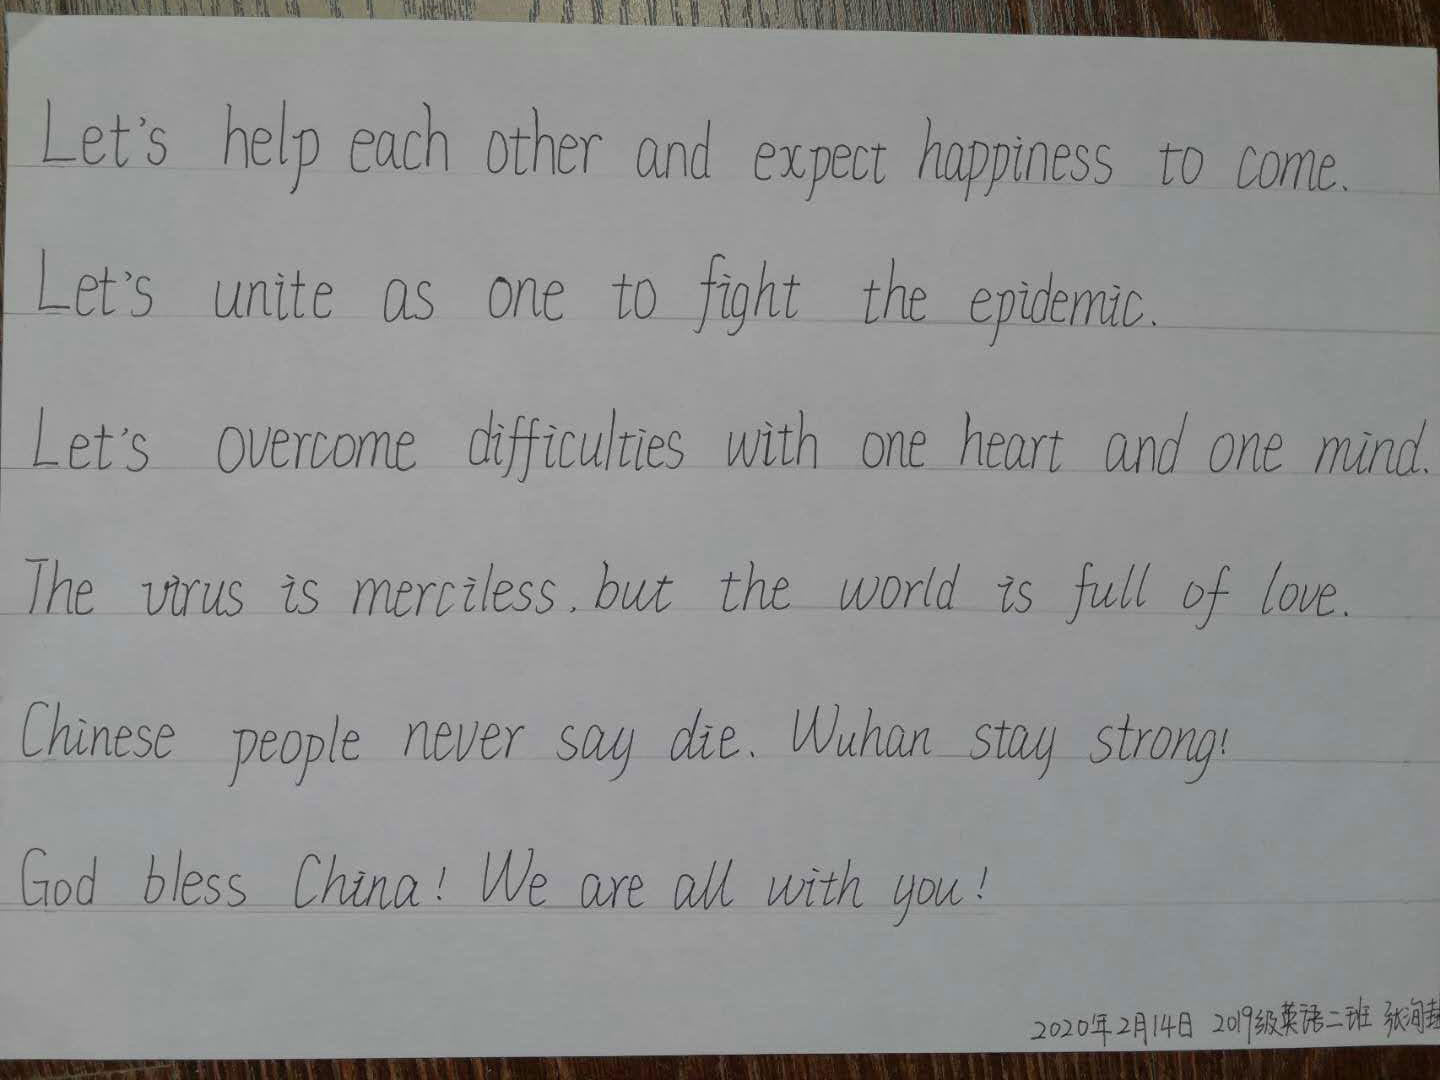 Let's help each other and expect happiness to come.
Let's unite as one to fight the epidemic.
Let's overcome difficulties with one heart and one mind.
The virus is merciless, but the world is full of love.
Chinese people never say die. Wuhan stay strong!
God bless China! We are all with you!
2020年2月14日 2019级英语二班 张洵